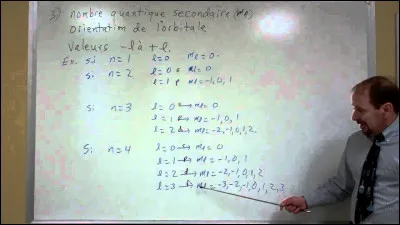 3) nombre quantique secondaire (mℓ)
Orientation de l'orbitale
Valeurs -ℓ à +ℓ.
Ex. si n = 1 ℓ=0 mℓ = 0
si n = 2 ℓ = 0 mℓ = 0
ℓ = 1 mℓ = -1, 0, 1
si n = 3 ℓ = 0 → mℓ = 0
ℓ = 1 → mℓ = -1, 0, 1
ℓ = 2 → mℓ = -2, -1, 0, 1, 2
Si n = 4 ℓ = 0 → mℓ = 0
ℓ = 1 → mℓ = -1, 0, 1
ℓ = 2 → mℓ = -2, -1, 0, 1, 2
ℓ = 3 → mℓ = -3, -2, -1, 0, 1, 2, 3